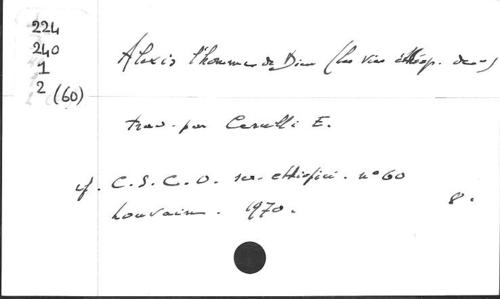 224
240
1
2 (60)
Alexis l'homme de Dieu (les vies éthiop. de -)
trad. par Cerulli E.
cf. C.S.C.O. scr. ethiopici. n° 60
Louvain. 1970. 8.